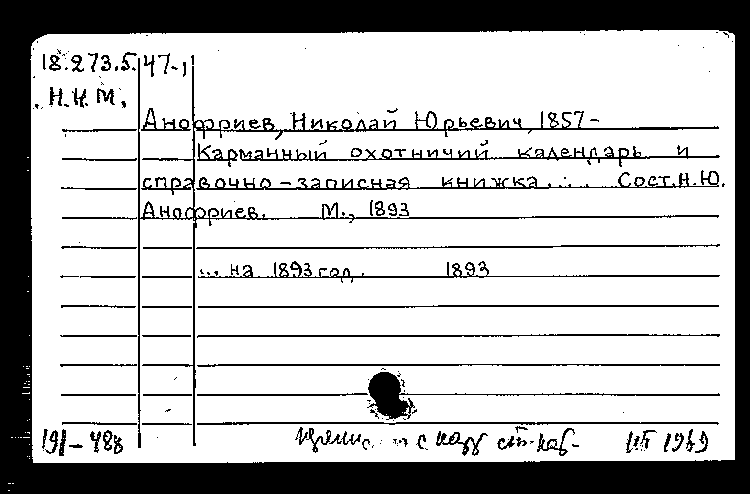 18.273.5.47-1
Н.К.М.
Анофриев, Николай Юрьевич, 1857-
Карманный охотничий календарь и
справочно-записная книжка... Сост. Н.Ю.
Анофриев. М., 1893
... на 1893 год. 1893
191-488 с